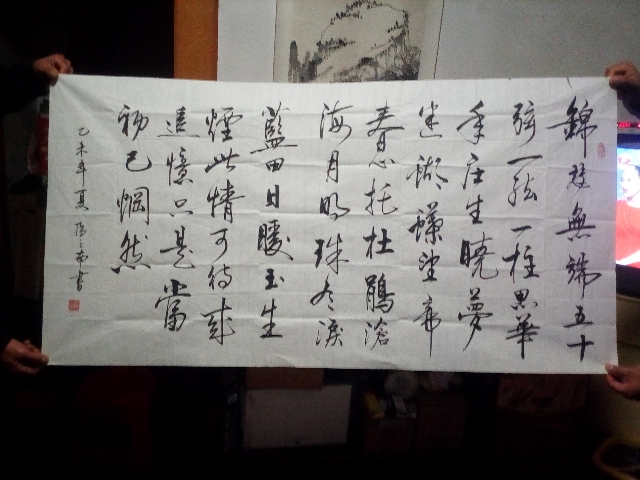 錦瑟無端五十
弦一弦一柱思華
年庄生曉夢
迷蝴蝶望帝
春心托杜鵑滄
海月明珠有淚
藍田日暖玉生
煙此情可待成
追憶只是當
初已惘然
乙未年夏書